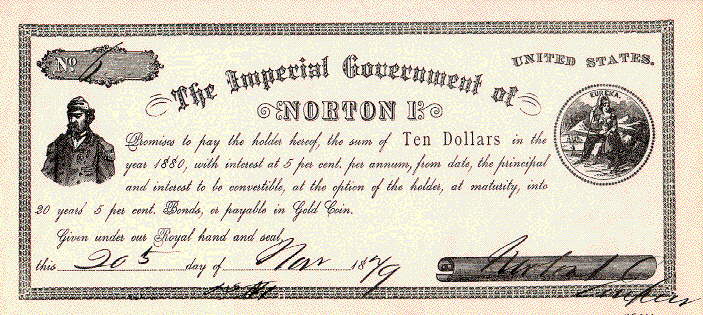 No 6
UNITED STATES.
The Imperial Government of
NORTON I.
EUREKA.
Promises to pay the holder hereof, the sum of Ten Dollars in the
year 1880, with interest at 5 per cent. per annum, from date, the principal
and interest to be convertible, at the option of the holder, at maturity, into
20 years' 5 per cent. Bonds, or payable in Gold Coin.
Given under our Royal hand and seal
this 20 5 day of Nov 1879
Norton I